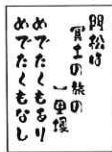 門松は
冥土の旅の
一里塚
めでたくもあり
めでたくもなし